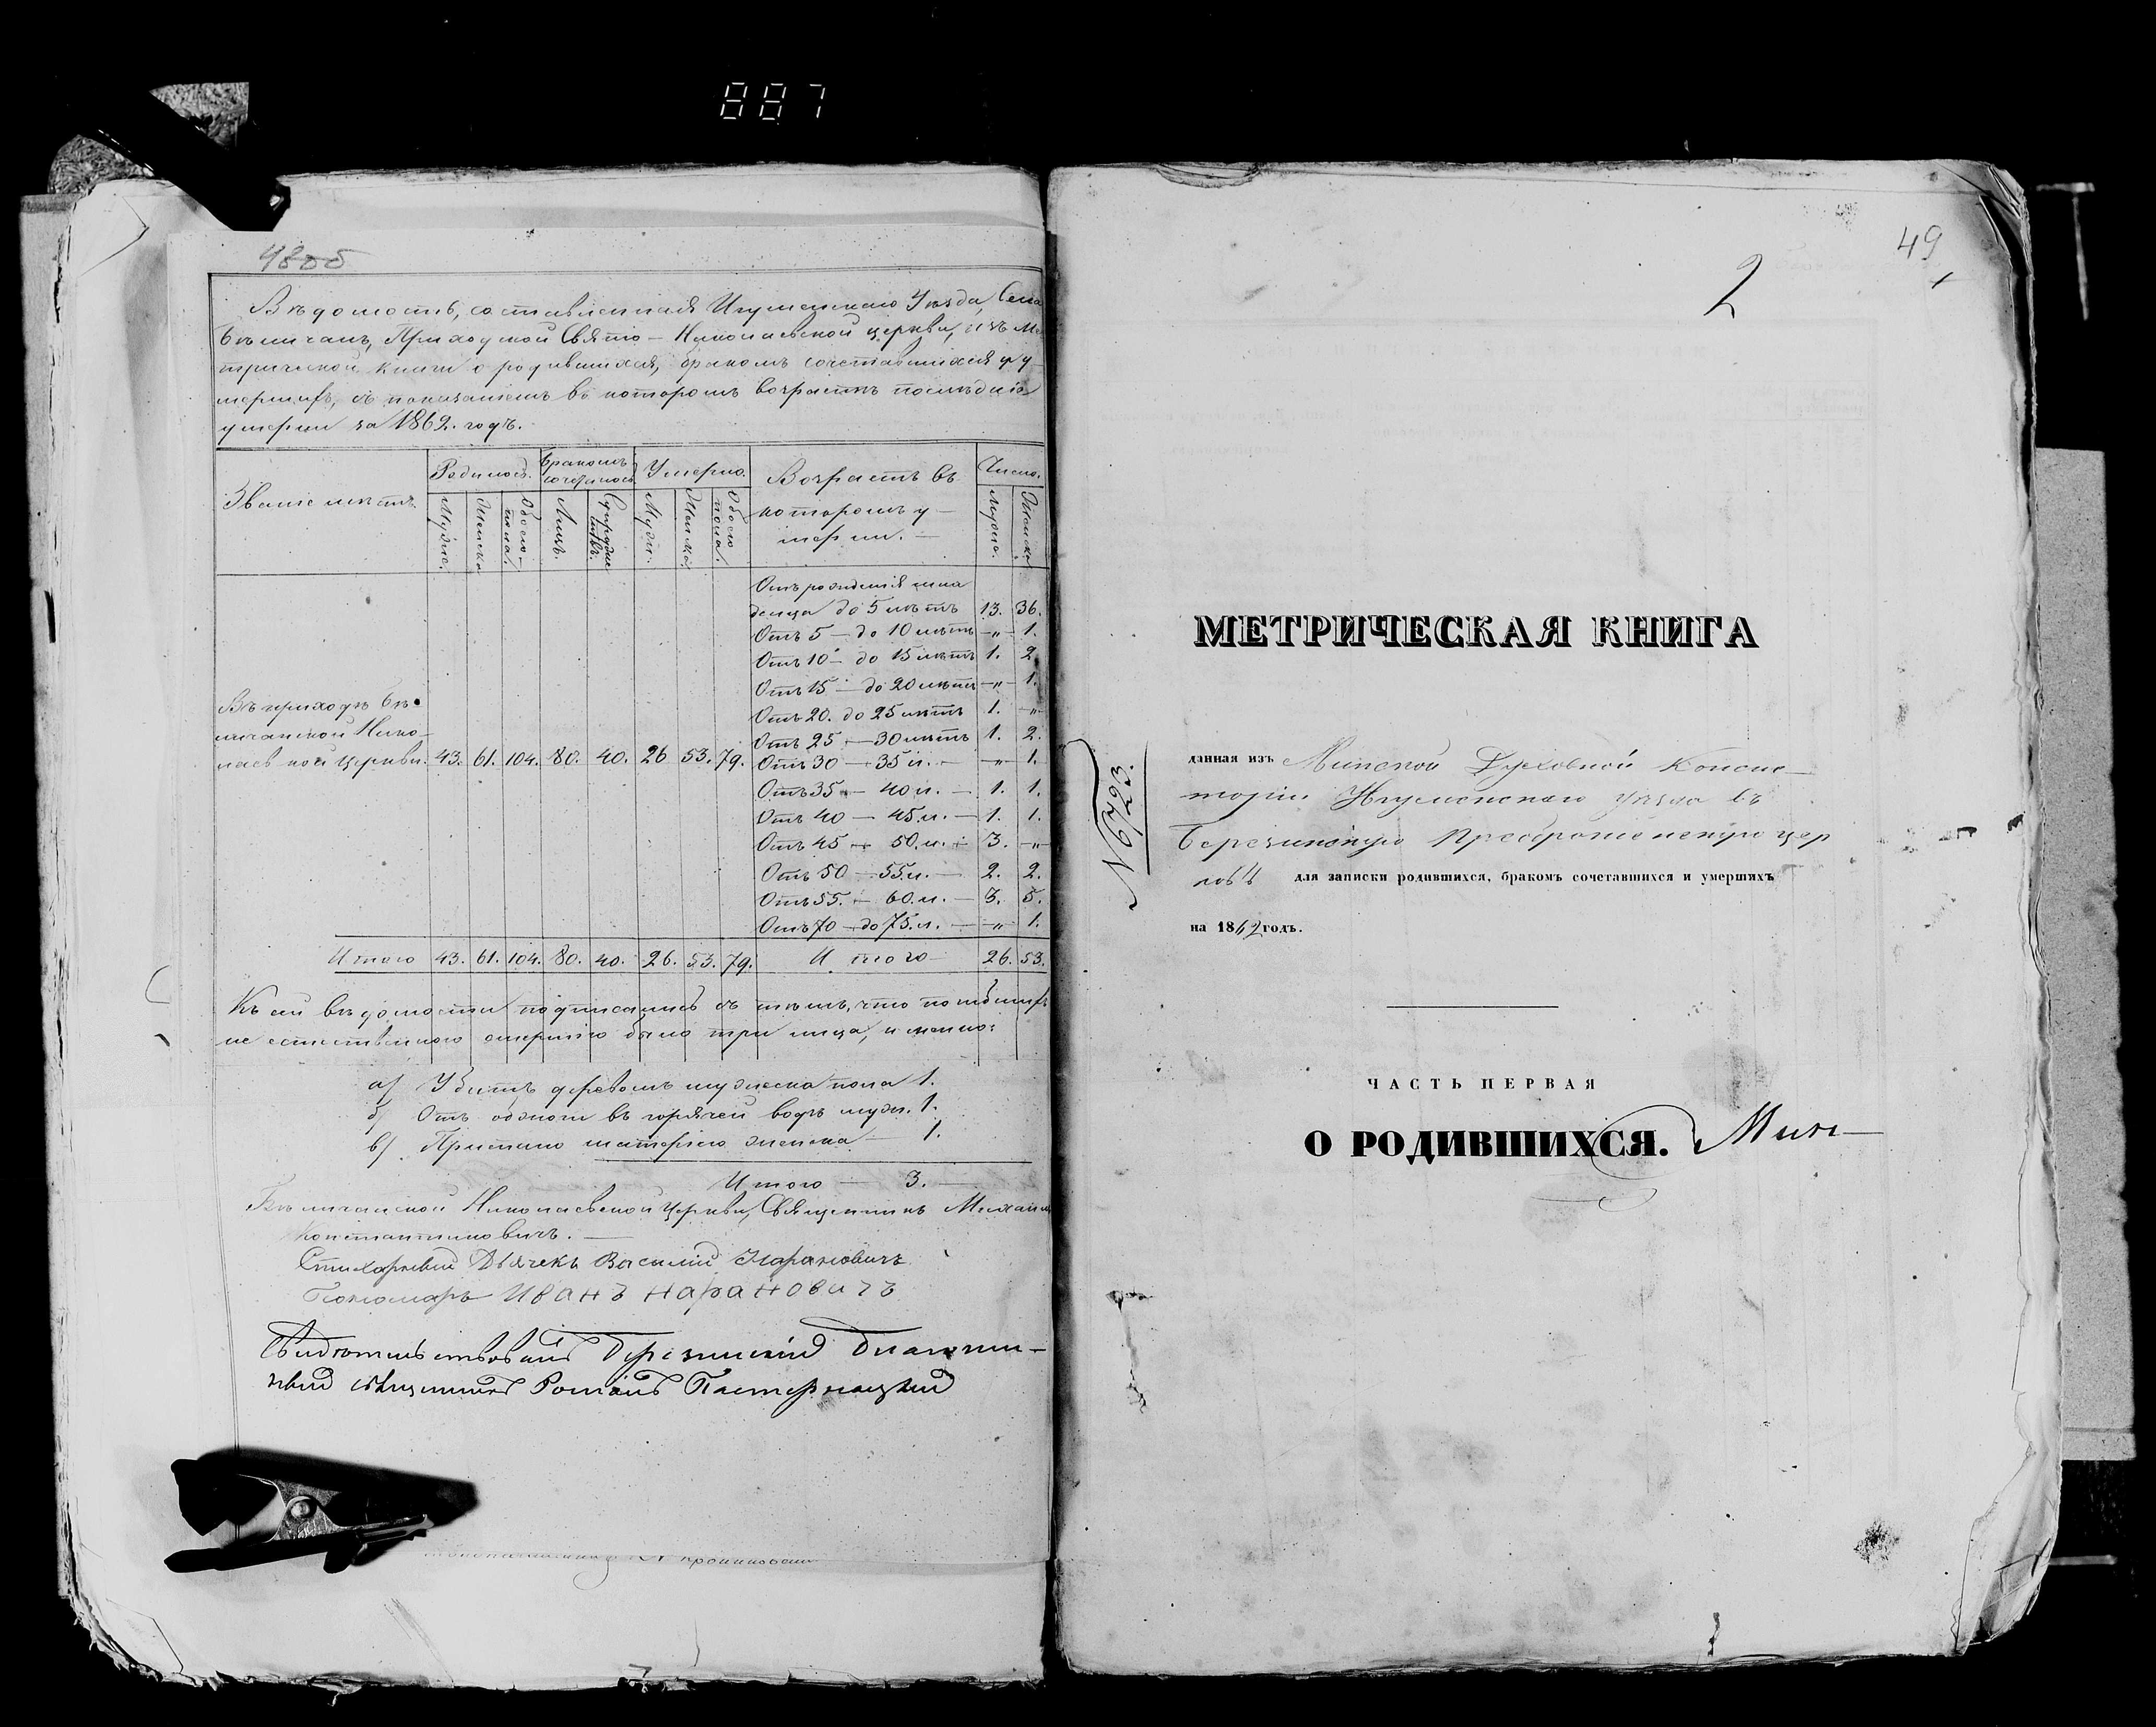 887
48об
Вѣдомость, составленная Игуменскаго Уѣзда, Села
Бѣличанъ, Приходской Свято-Николаевской церкви, изъ Ме
трической книги о родившихся, бракомъ сочетавшихся и у-
мершихъ, съ показаніемъ въ которомъ возрастѣ послѣдніе
умерли за 1862. годъ.
Званіе мѣстъ
Родилось.
Бракомъ сочеталось
Умерло.
Возрастъ въ
которомъ у-
мерли. —
Число.
Мужес. Женска Обоего пола. Лицъ. Супружествъ. Мужс. Женска Обоего пола. Мужс. Женска
Отъ рожденія мла
денца до 5 лѣтъ 13. 36.
Отъ 5 — до 10 лѣтъ —„— 1.
Отъ 10 — до 15 лѣтъ 1. 2.
Отъ 15 — до 20 лѣтъ —„— 1.
Отъ 20. до 25 лѣтъ 1. —„—
Отъ 25 — 30 лѣтъ 1. 2.
Отъ 30 — 35 л. — —„— 1.
Отъ 35 — 40 л. — 1. 1.
Отъ 40 — 45 л. — 1. 1.
Отъ 45 — 50. л. — 3. —„—
Отъ 50 — 55 л. — 2. 2.
Отъ 55. — 60. л. — 3. 5.
Отъ 70 — до 75. л. — —„— 1.
Въ приходѣ Бѣ-
личанской Нико-
лаевской церкви. 43. 61. 104. 80. 40. 26 53. 79.
Итого 43. 61. 104. 80. 40. 26. 53. 79. Итого 26. 53.
Къ сей вѣдомости подписались съ тѣмъ, что погибшихъ
не естественною смертію было три лица, именно:
а) Убитъ деревомъ мужеска пола 1.
б) Отъ обжоги въ горячей водѣ муж. 1.
в) Приспано матерію женска — 1.
Итого — 3.
Бѣличанской Николаевской Церкви, Священникъ Михаилъ
Константиновичъ. —
Стихарный Дьячекъ Василій Нарановичъ
Пономарь Иванъ Нарановичъ
Свидѣтельствовалъ Березинскій благочин-
ный священникъ Романъ Пастернацкій
49
2
МЕТРИЧЕСКАЯ КНИГА
№ 6723.
данная изъ Минской Духовной Консис-
торіи Игуменскаго уѣзда въ
Березинскую Преображенскую цер
ковь для записки родившихся, бракомъ сочетавшихся и умершихъ
на 1862 годъ.
ЧАСТЬ ПЕРВАЯ
О РОДИВШИХСЯ.
Мин—